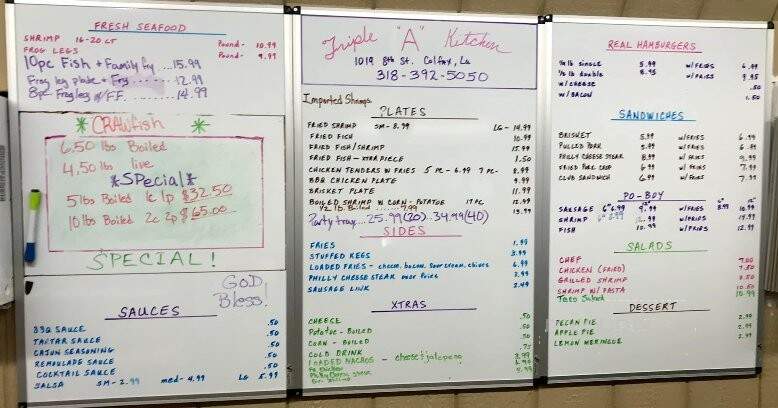 FRESH SEAFOOD
SHRIMP 16-20 CT Pound - 10.99
FROG LEGS Pound - 9.99
10pc Fish + Family fry ...15.99
Frog leg plate + Fry ... 12.99
8pc Froglegs w/FF. 14.99
* CRAWfish *
6.50 lbs Boiled
4.50 lbs live
*SPecial*
5 lbs Boiled 1c 1p $32.50
10 lbs Boiled 2c 2p $65.00
SPECIAL!
GOD Bless!
SAUCES
BBQ SAUCE .50
TARTAR SAUCE .50
CAJUN SEASONING .50
REMOULADE SAUCE .50
COCKTAIL SAUCE .50
SALSA SM - 2.99 med - 4.99 LG 5.99
Triple "A" Kitchen
1019 8th St. Colfax, La
318-392-5050
Imported Shrimp
PLATES
FRIED SHRIMP SM - 8.99 LG - 14.99
FRIED FISH 10.99
FRIED FISH/SHRIMP 15.99
FRIED FISH - XTRA PIECE 1.50
CHICKEN TENDERS W FRIES 5 PC - 6.99 7 PC - 8.99
BBQ CHICKEN PLATE 9.99
BRISKET PLATE 11.99
BOILED SHRIMP W CORN - POTATOE 17 PC 12.99
1/2 lb. Boiled 7.99 13.99
Party trays...25.99 (20) . 34.99 (40)
SIDES
FRIES 1.99
STUFFED KEGS 3.99
LOADED FRIES - cheese, bacon, sour cream, chives 6.99
PHILLY CHEESE STEAK over fries 7.99
SAUSAGE LINK 2.49
XTRAS
CHEESE .50
Potatoe - BOILED .50
CORN - BOILED .50
COLD DRINK .75
LOADED NACHOS - cheese & jalapeno
REAL HAMBURGERS
1/4 lb single 5.99 w/FRIES 6.99
1/2 lb double 8.95 w/FRIES 9.95
w/CHEESE .50
w/BACON 1.50
SANDWICHES
BRISKET 5.99 w/FRIES 6.99
PULLED PORK 5.99 w/FRIES 6.99
PHILLY CHEESE STEAK 8.99 w/FRIES 9.99
FRIED PORK CHOP 6.99 w/FRIES 7.99
CLUB SANDWICH 6.99 w/FRIES 7.99
PO-BOY
SAUSAGE 6" 6.99 12" w/FRIES
SHRIMP w/FRIES
FISH 10.99 w/FRIES 12.99
SALADS
CHEF 7.00
CHICKEN (FRIED) 7.50
GRILLED SHRIMP 8.50
SHRIMP W/ PASTA 10.50
Taco Salad 10.99
DESSERT
PECAN PIE 2.99
APPLE PIE 2.99
LEMON MERINGUE 2.99